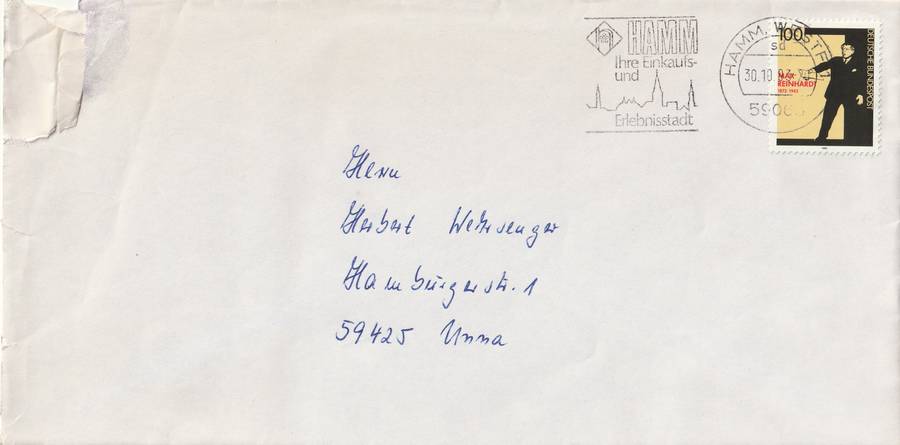 HAMM
Ihre Einkaufs-
und
Erlebnisstadt
HAMM, WESTF
sd
30.10.93
5906
100
DEUTSCHE BUNDESPOST
MAX
REINHARDT
1873-1943
Herrn
Herbert Wehrsenger
Hamburgerstr. 1
59425 Unna